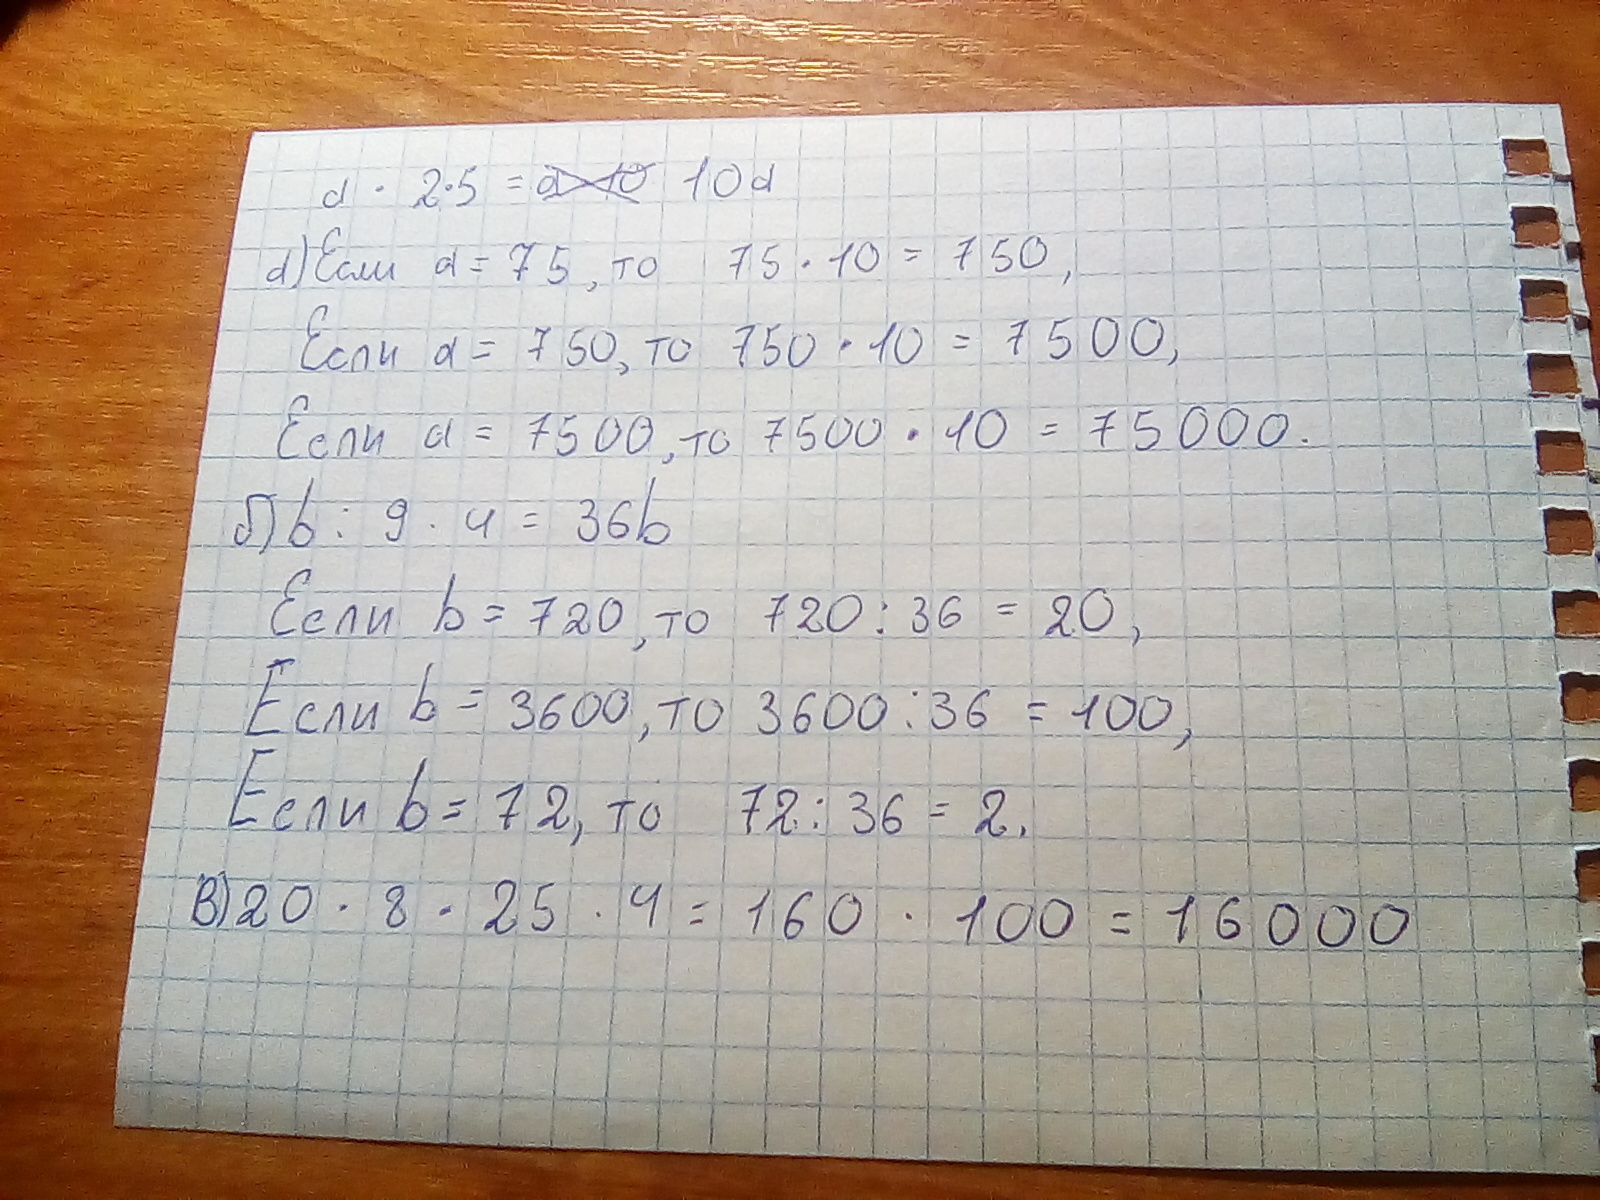 a · 2·5 = a·10 10a
а) Если a = 75, то 75 · 10 = 750,
Если a = 750, то 750 · 10 = 7500,
Если a = 7500, то 7500 · 10 = 75000.
б) b : 9 · 4 = 36b
Если b = 720, то 720 : 36 = 20,
Если b = 3600, то 3600 : 36 = 100,
Если b = 72, то 72 : 36 = 2.
в) 20 · 8 · 25 · 4 = 160 · 100 = 16000